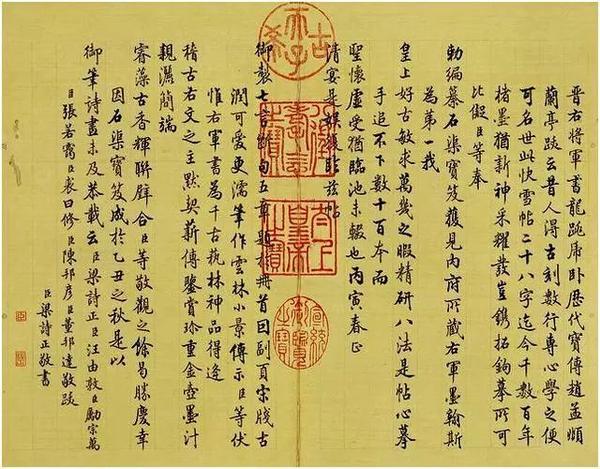 晉右將軍書龍跳虎臥歷代寶傳趙孟頫
蘭亭跋云昔人得古刻數行專心學之便
可名世此快雪帖二十八字迄今千數百年
楮墨猶新神采耀發豈鐫拓鉤摹所可
比儗臣等奉
勅編纂石渠寶笈獲見內府所藏右軍墨翰斯
為第一我
皇上好古敏求萬幾之暇精研八法是帖心摹
手追不下數十百本而
聖懷虛受猶臨池未輟也丙寅春正
清宴復臨茲帖
御製七言斷句五章題於冊首因副頁宋牋古
潤可愛更濡筆作雲林小景傳示臣等伏
惟右軍書為千古執林神品得逢
稽古右文之主默契薪傳鑒賞珍重金壺墨汁
親灑簡端
睿藻古香輝聯璧合臣等敬觀之餘曷勝慶幸
因石渠寶笈成於乙丑之秋是以
御筆詩畫未及恭載云臣梁詩正臣汪由敦臣勵宗萬
臣張若靄臣裘曰修臣陳邦彥臣董邦達敬跋
臣梁詩正敬書
古希天子
八徵耄念之寶
太上皇帝之寶
宣統御覽之寶